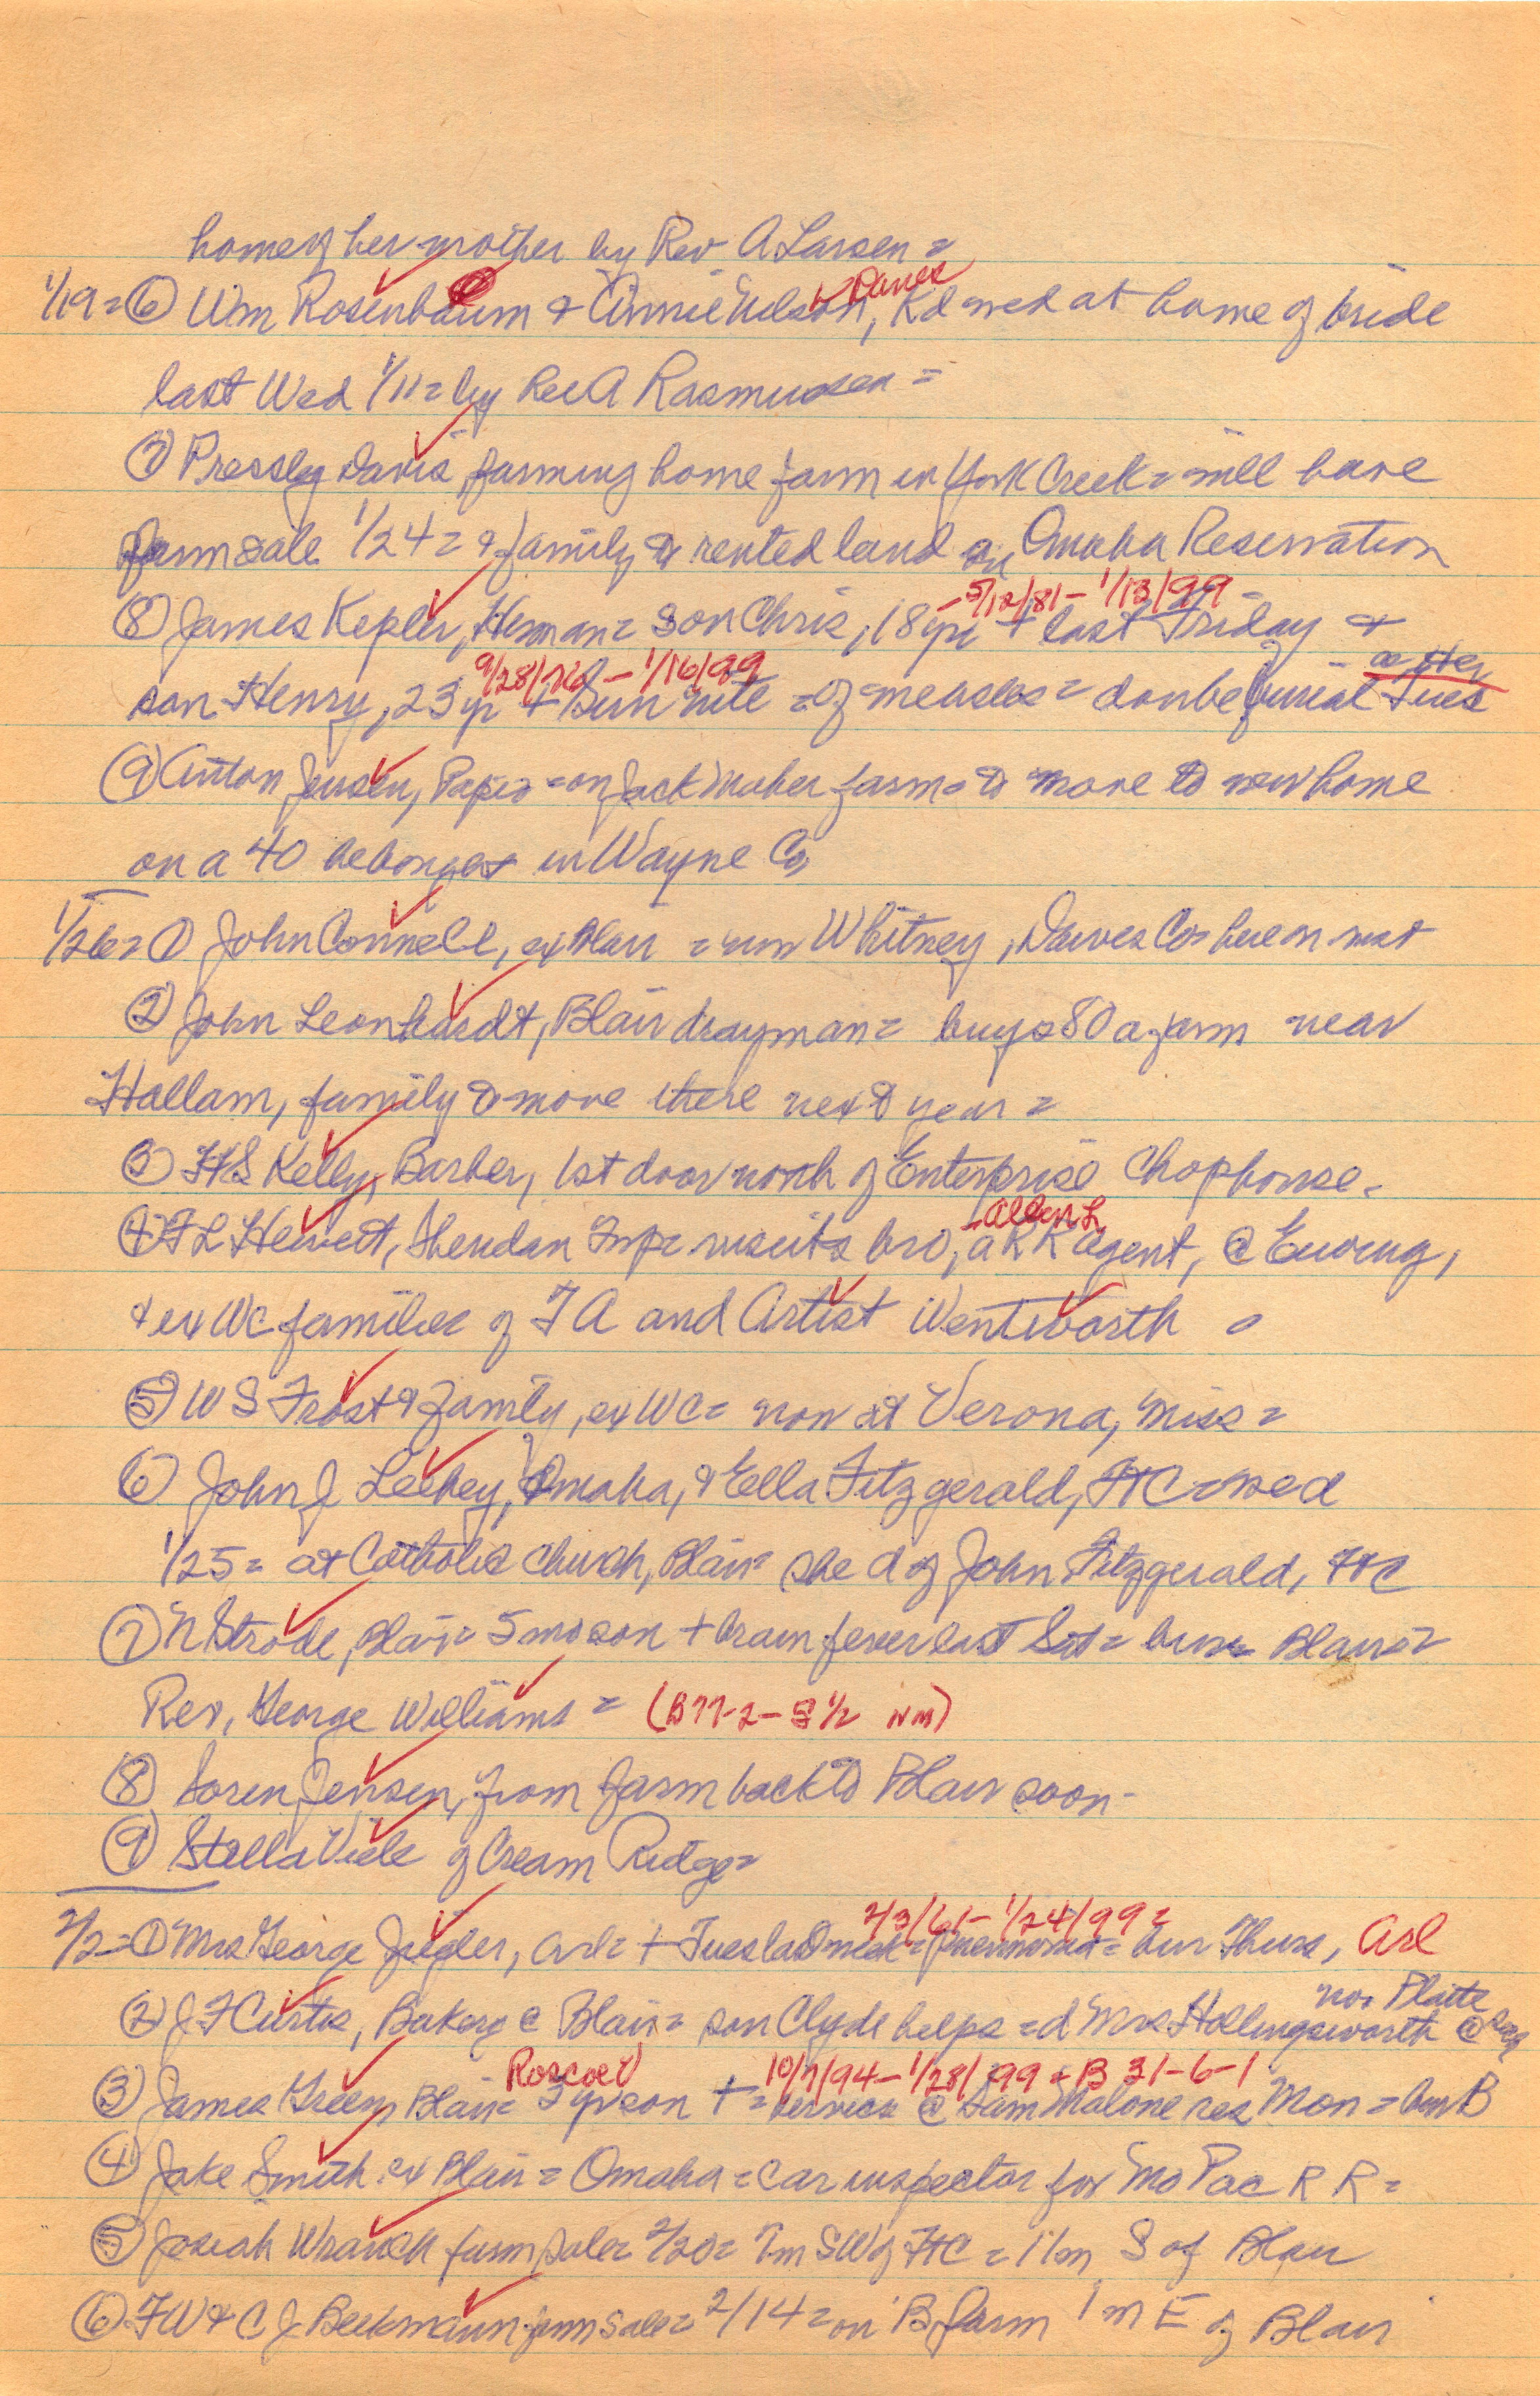 home of her mother by Rev A Larsen =
1/19 = ⑥ Wm Rosenbaum & Annie Nelson, Kd wed at home of bride
last Wed 1/11 = by Rev A Rasmussen =
⑦ Pressley Davis, farming home farm in York Creek = will have
farm sale 1/24 = & family to rented land on Omaha Reservation
- 5/12/81 - 1/13/99 -
⑧ James Kepler, Herman = son Chris, 18 yr + last Friday +
9/28/76 - 1/16/99
son Henry, 23 yr + Sun nite = of measles = double funeral Tues
⑨ Anton Jensen, = on Jack Maher farm = to move to new home
on a 40 he bought in Wayne Co
1/26 = ① John Connell, ex Blair = now Whitney, Dawes Co = here on visit
② John Leonhardt, Blair drayman = buys 80 a farm near
Hallam, family to move there next year =
③ H S Kelly, Barber, 1st door north of Enterprise Chophouse -
- Allen L
④ F L Hewett, Sheridan Twp = visits bro, a RR agent, @ Ewing,
& ex WC families of F A and Artist Wentworth =
⑤ W S Frost & family, ex WC = now at Verona, Miss =
⑥ John J Leehey, Omaha, & Ella Fitzgerald, FtC = wed
1/25 = at Catholic Church, Blair = she d of John Fitzgerald, FtC
⑦ N Strode, Blair = 5 mo son + brain fever last Sat = bur = Blair =
Rev, George Williams = (B77-2- S 1/2 NM)
⑧ Soren Jensen, from farm back to Blair soon -
⑨ Stella Viele of Cream Ridge =
2/3/61 - 1/24/99 =
2/2 = ① Mrs George , Arl = + Tues last week = pneumonia = bur Thurs, Arl
nor Platte
② J F Curtis, Bakery @ Blair = son Clyde helps = d Mrs Hollingsworth @
Roscoe V 10/7/94 - 1/28/99 + B 31-6-1
③ James Green, Blair = yr son + = services @ Sam Malone res Mon = bur B
④ Jake Smith ex Blair = Omaha = car inspector for Mo Pac R R =
⑤ Josiah Wrauch farm sale = 2/20 = 7m SW of FtC = 11m S of Blair
⑥ F W & C J Beekmann farm sale = 2/14 = on B farm 1 m E of Blair